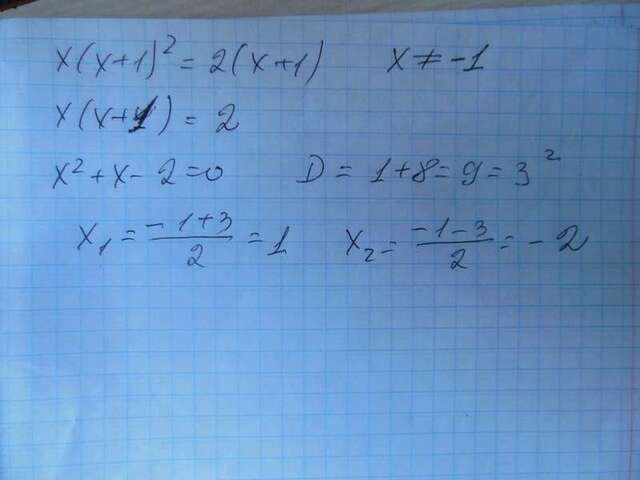 x(x+1)² = 2(x+1) x ≠ -1
x(x+1) = 2
x² + x - 2 = 0 D = 1+8 = 9 = 3²
x₁ = (-1+3)/2 = 1 x₂ = (-1-3)/2 = -2